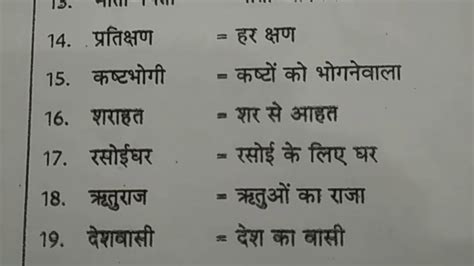 14. प्रतिक्षण = हर क्षण
15. कष्टभोगी = कष्टों को भोगनेवाला
16. शराहत = शर से आहत
17. रसोईघर = रसोई के लिए घर
18. ऋतुराज = ऋतुओं का राजा
19. देशवासी = देश का वासी